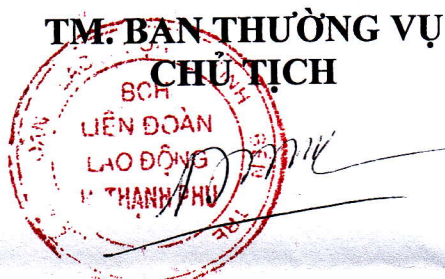 TM. BAN THƯỜNG VỤ
CHỦ TỊCH
BCH
LIÊN ĐOÀN
LAO ĐỘNG
H. THẠNH PHÚ